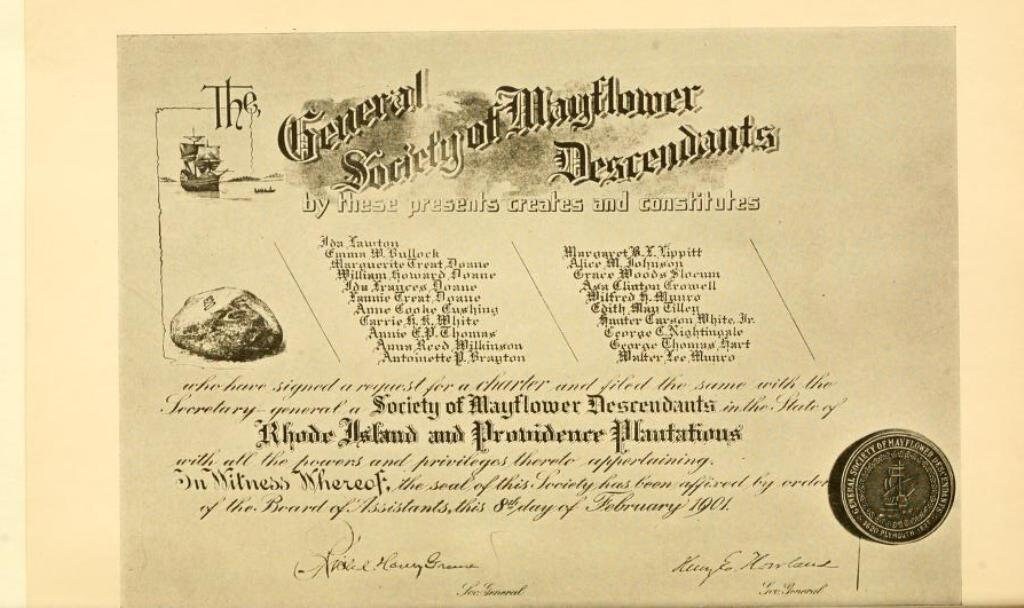 The
General
Society of Mayflower
Descendants
by these presents creates and constitutes
Ida Lawton
Emma W. Bullock
Marguerite Treat Doane
William Howard Doane
Ida Frances Doane
Fannie Treat Doane
Anne Cooke Cushing
Carrie K. K. White
Annie E. P. Thomas
Anna Reed Wilkinson
Antoinette P. Brayton
Margaret B. L. Lippitt
Alice M. Johnson
Grace Woods Slocum
Asa Clinton Crowell
Wilfred H. Munro
Edith May Tilley
Hunter Carson White, Jr.
George C. Nightingale
George Thomas Hart
Walter Lee Munro
who have signed a request for a charter and filed the same with the
Secretary-general a Society of Mayflower Descendants in the State of
Rhode Island and Providence Plantations
with all the powers and privileges thereto appertaining.
In Witness Whereof, the seal of this Society has been affixed by order
of the Board of Assistants, this 8th day of February 1901.
Henry Greene
Henry E. Howland
Sec. General
Gov. General
GENERAL SOCIETY OF MAYFLOWER DESCENDANTS
1620 PLYMOUTH